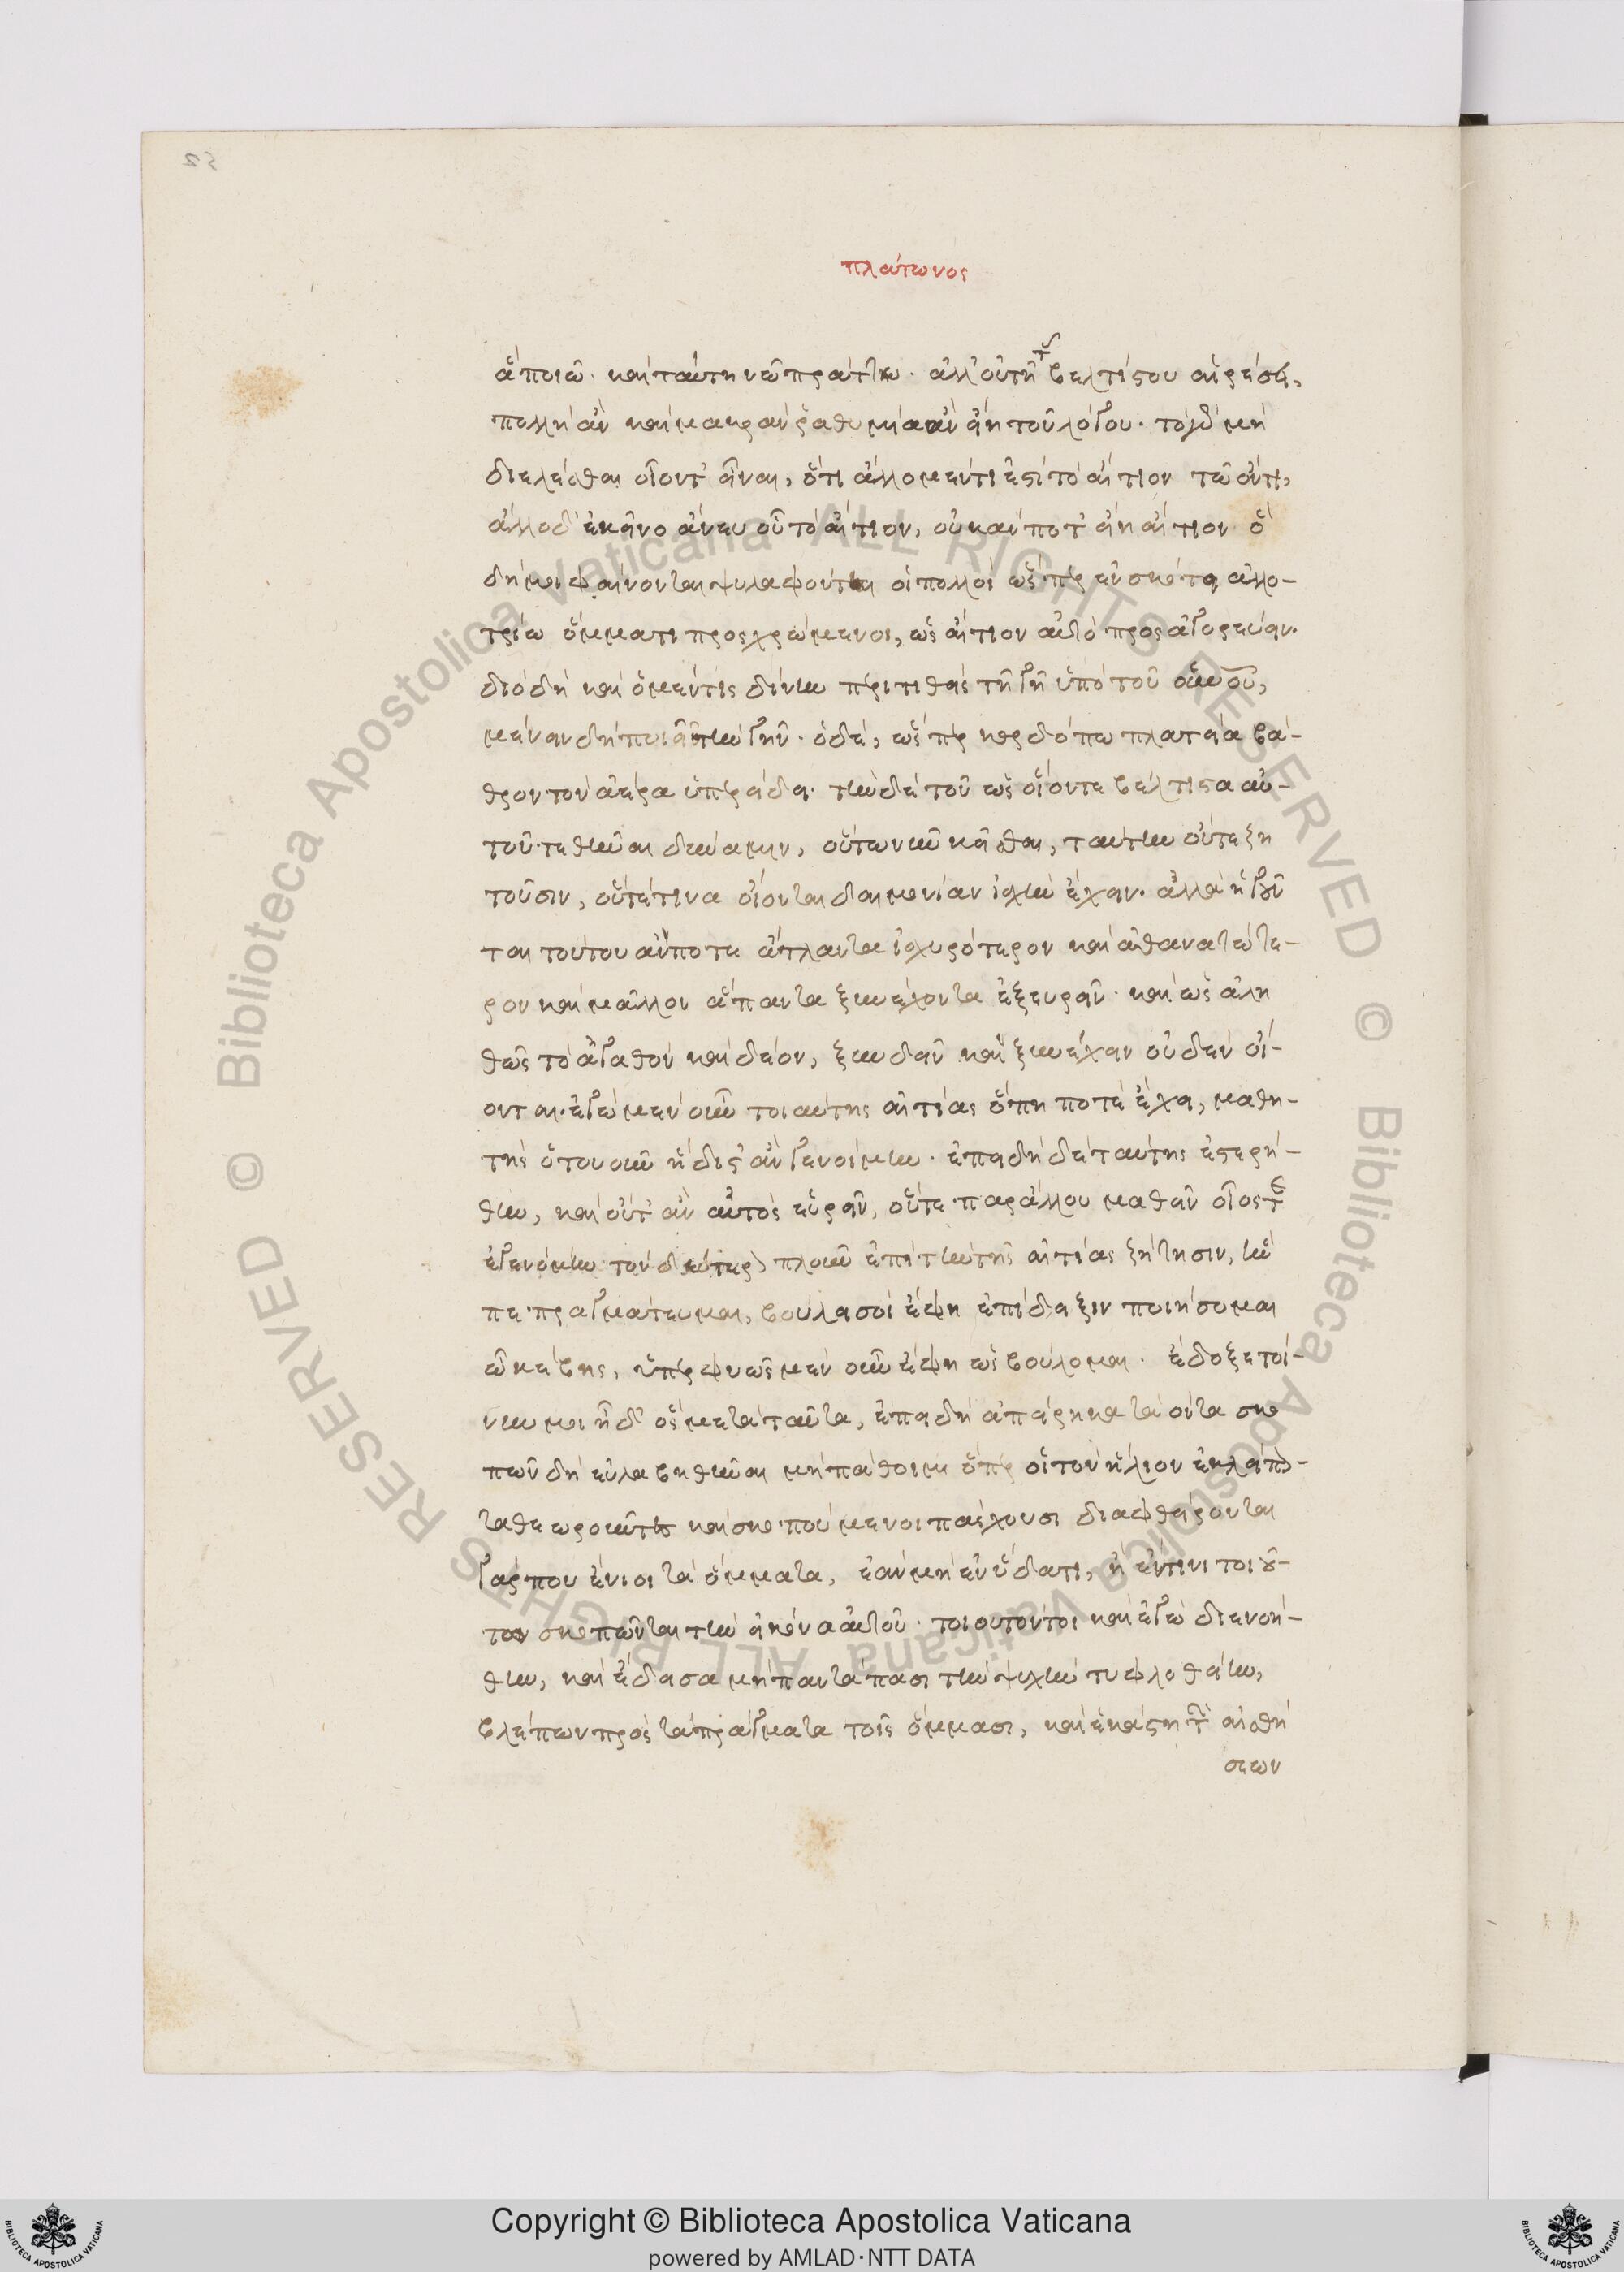 πλάτωνος
ἃ ποιῶ. καὶ ταύτη νῷ πράττω. ἀλλ' οὐ τῇ τοῦ βελτίστου αἱρέσει,
πολλὴ ἂν καὶ μακρὰν ῥαθυμία ἂν εἴη τοῦ λόγου. τὸ γὰρ μὴ
διελέσθαι οἷόντ' εἶναι, ὅτι ἄλλο μέν τι ἐστὶ τὸ αἴτιον τῷ ὄντι,
ἄλλο δ' ἐκεῖνο ἄνευ οὗ τὸ αἴτιον, οὐκ ἄν ποτ' εἴη αἴτιον ὃ
δή μοι φαίνονται ψηλαφοῦντες οἱ πολλοὶ ὥσπερ ἐν σκότει ἀλλο-
τρίῳ ὄμματι προσχρώμενοι, ὡς αἴτιον αὐτὸ προσαγορεύειν.
διὸ δὴ καὶ ὁ μέν τις δίνην περιτιθεὶς τῇ γῇ ὑπὸ τοῦ οὐνοῦ,
μένειν δὴ ποιεῖ τὴν γῆν. ὁ δέ, ὥσπερ καρδόπῳ πλατείᾳ βά-
θρον τὸν ἀέρα ὑπερείδει. τὴν δὲ τοῦ ὡς οἷόντε βέλτιστα αὐ-
τοῦ τεθῆναι δύναμιν, οὕτω νῦν κεῖσθαι, ταύτην οὔτε ζη
τοῦσιν, οὔτέ τινα οἴονται δαιμονίαν ἰσχὺν ἔχειν. ἀλλὰ ἡγοῦν
ται τούτου ἄν ποτε ἄτλαντα ἰσχυρότερον καὶ ἀθανατώτε-
ρον καὶ μᾶλλον ἅπαντα ξυνέχοντα ἐξευρεῖν. καὶ ὡς ἀλη
θῶς τὸ ἀγαθὸν καὶ δέον, ξυνδεῖν καὶ ξυνέχειν οὐδὲν οἴ-
ονται. ἐγὼ μὲν οὖν τοιαύτης αἰτίας ὅπη ποτὲ ἔχει, μαθη-
τὴς ὁτουοῦν ἥδιστ' ἂν γενοίμην. ἐπειδὴ δὲ ταύτης ἐστερή-
θην, καὶ οὔτ' ἂν αὐτὸς εὑρεῖν, οὔτε παρ' ἄλλου μαθεῖν οἷόςτε
ἐγενόμην τὸν δεύτερον πλοῦν ἐπὶ τὴν τῆς αἰτίας ζήτησιν, ᾗ
πεπραγμάτευμαι, βούλει σοὶ ἔφη ἐπίδειξιν ποιήσομαι
ὦ κέβης, ὑπερφυῶς μὲν οὖν ἔφη ὡς βούλομαι. ἔδοξε τοί-
νυν μοι ἦ δ' ὃς μετὰ ταῦτα, ἐπειδὴ ἀπείρηκα τὰ ὄντα σκο
πῶν δὴ εὐλαβηθῆναι μὴ πάθοιμι ὅπερ οἱ τὸν ἥλιον ἐκλείπον-
τα θεωροῦντες καὶ σκοπούμενοι πάσχουσι διαφθείρονται
γάρ που ἔνιοι τὰ ὄμματα, ἐὰν μὴ ἐν ὕδατι, ἢ ἔν τινι τοιού-
τον σκοπῶνται τὴν εἰκόνα αὐτοῦ. τοιοῦτόν τοι καὶ ἐγὼ διενοή-
θην, καὶ ἔδεισα μὴ παντάπασι τὴν ψυχὴν τυφλοθείην,
βλέπων πρὸς τὰ πράγματα τοῖς ὄμμασι, καὶ ἑκάστη τῶν αἰσθή
σεων